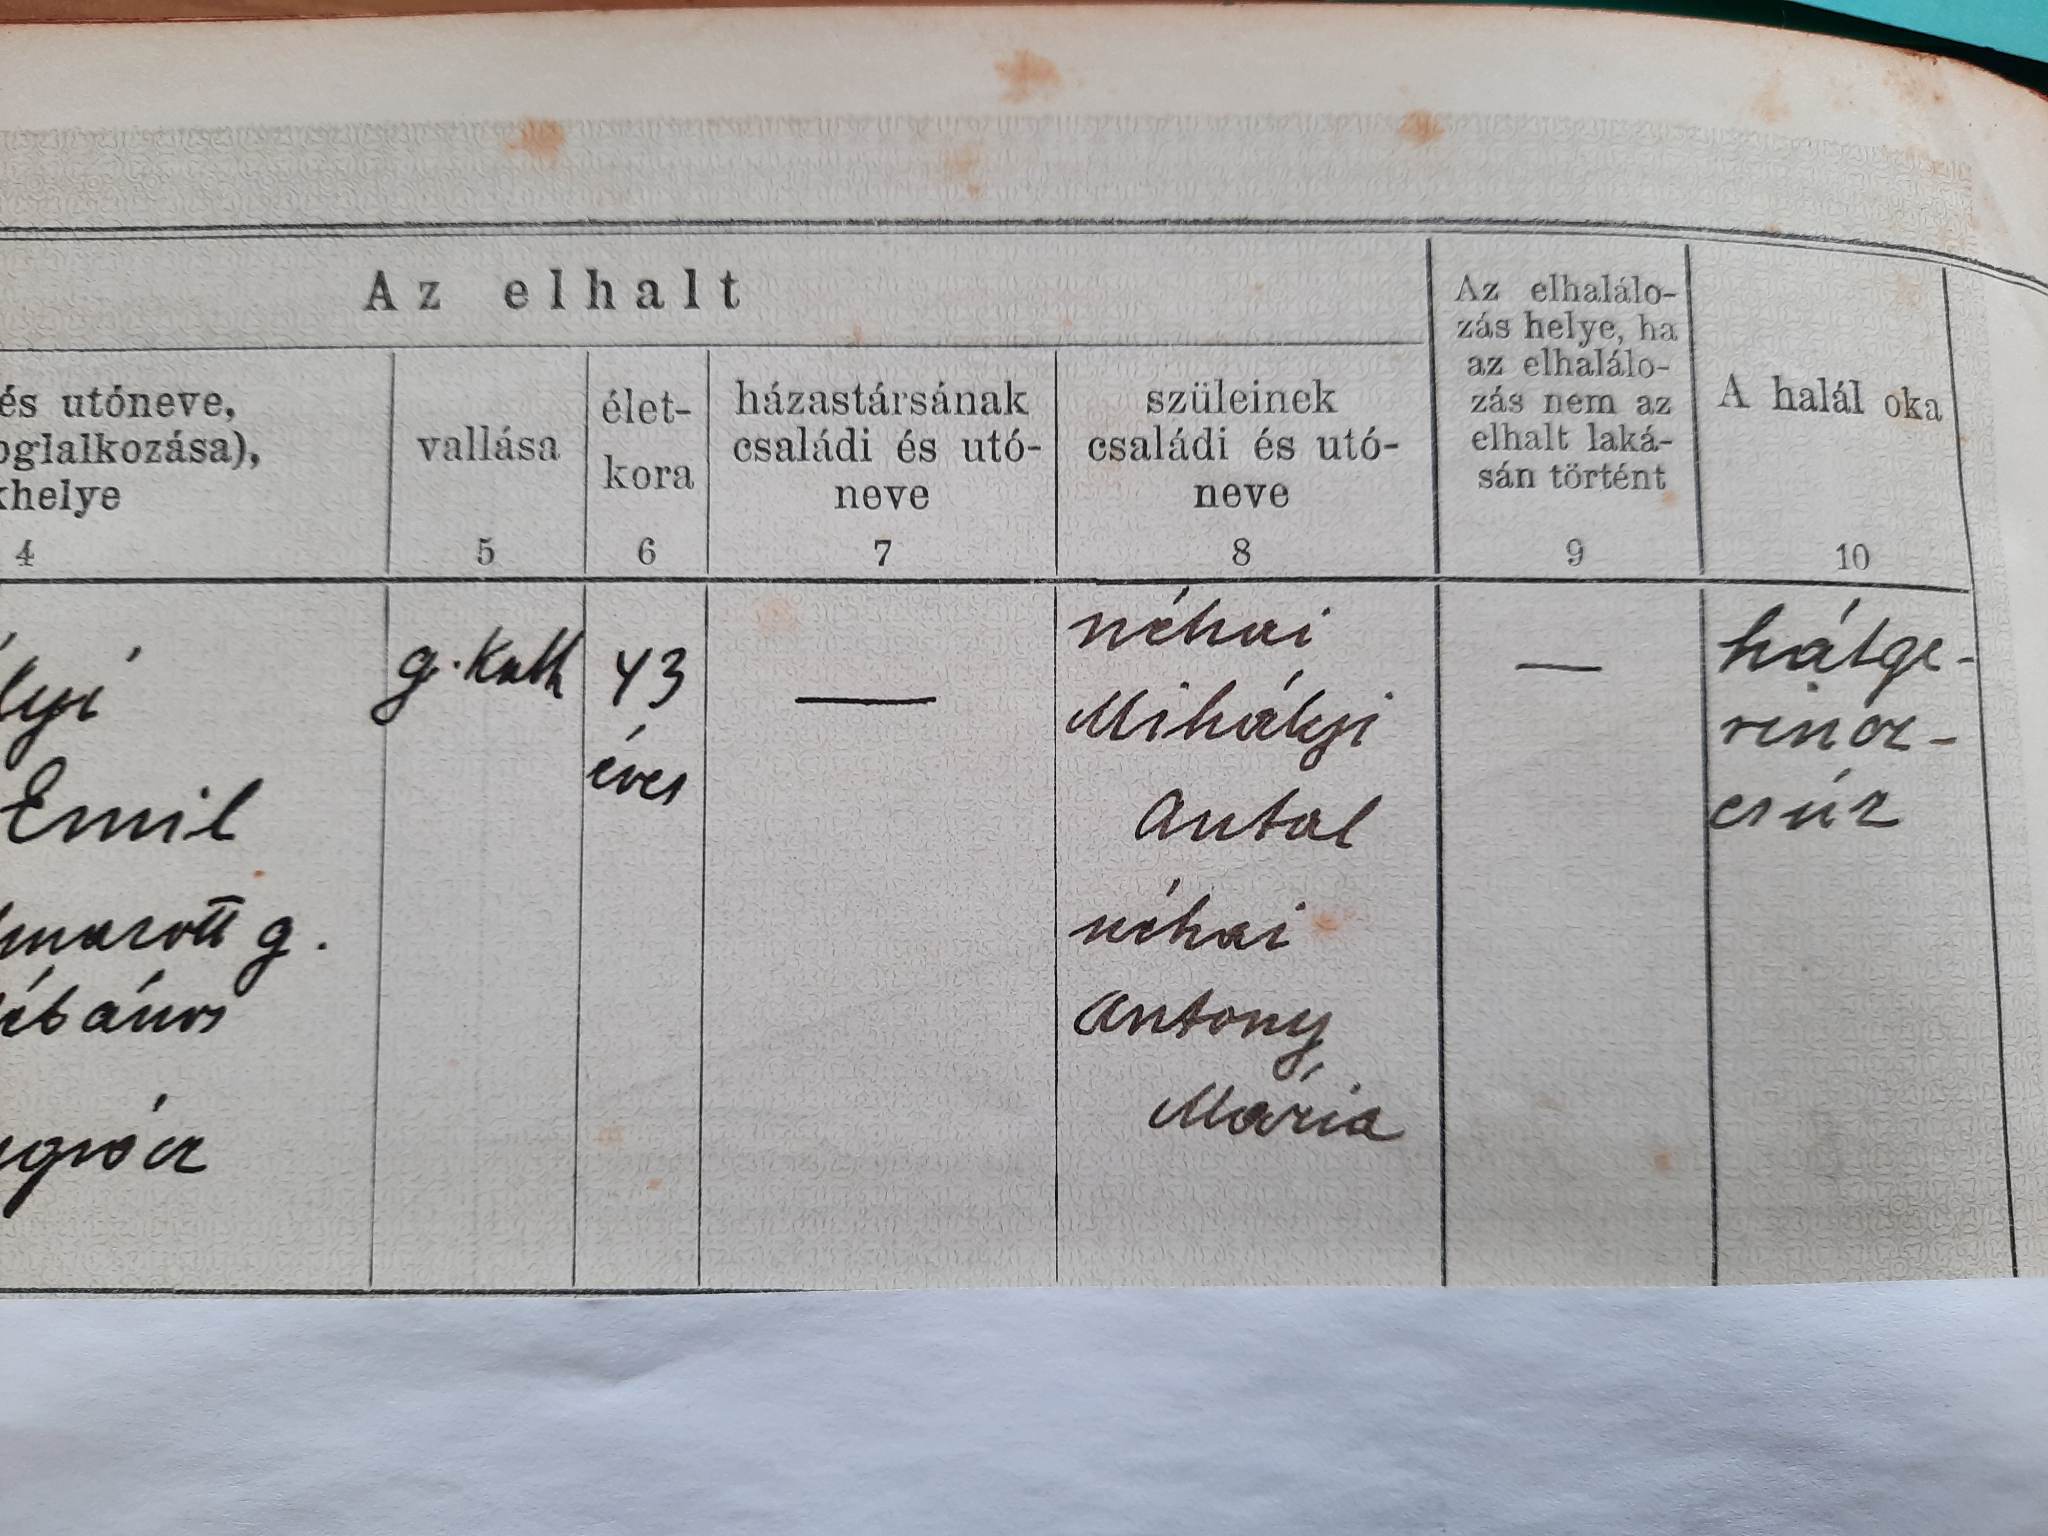 Az elhalt
és utóneve,
oglalkozása),
khelye
4
vallása
5
élet-
kora
6
házastársának
családi és utó-
neve
7
szüleinek
családi és utó-
neve
8
Az elhalálo-
zás helye, ha
az elhalálo-
zás nem az
elhalt laká-
sán történt
9
A halál oka
10
ályi
Emil
marott g.
plébános
g. kath
43
éves
—
néhai
Mihályi
Antal
néhai
Antony
Mária
—
hátge-
rincz-
csúz